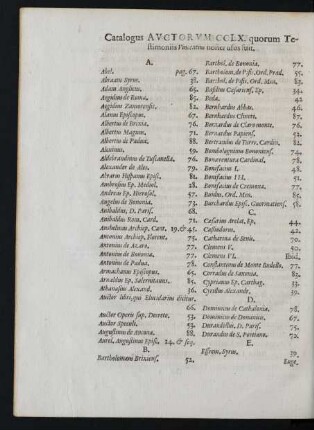 Catalogus AVCTORVM CCLX. quorum Te-
stimoniis
A.
Abel. pag. 67.
Abraam Syrus. 38.
Adam Anglicus. 65.
Aegidius de Roma. 85.
Aegidius 85.
Alanus Episcopus. 67.
Albertus de Brixia. 76.
Albertus Magnus. 71.
Albertus de Padua. 88.
Alcuinus. 59.
Aldebrandinus de Tuscanella. 76.
Alexander de Ales. 79.
Episc. 81.
Ambrosius Ep. Mediol. 28.
Andreas Ep. Hierosol. 57.
Angelus de Bononia. 73.
Anibaldus, D. Paris. 68.
Anibaldus Rom. Card. 71.
Archiep. Cant. 39. & 45.
Antonius Archiep. Florent. 75.
Antonius de 77.
Antonius de Bononia. 77.
Antonius de Padua. 78.
Armachanus Episcopus. 65.
Arnaldus Ep. Salernitanus. 85.
Athanasius Alexand. 36.
Auctor libri, qui Elucidarius dicitur.
66.
Auctor Operis sup. Decreto. 53.
Auctor Speculi. 53.
Augustinus de Ancona. 88.
Aurel. Augustinus Episc. 24. & seq.
B.
Bartholomeus Brixiens. 52.
Barthol. de Bononia. 77.
Bartholom. de Pisis, Ord. Præd. 55.
Barthol. de Pisis, Ord. Min. 83.
Basilius Cæsariens. Ep. 34.
Beda. 42
Bernhardus Abbas. 46.
Bernhardus 87.
Bernardus de Claromonte. 76.
Bernardus 52.
Bertrandus de Turre, Cardin. 82.
Bonaventura Cardinal. 78.
Bonifacius I. 48.
Bonifacius III. 51.
Bonifacius de Cremona. 77.
Ord. Min. 85.
Burchardus Episc. 58.
C.
Cæsarius Arelat. Ep. 44.
Cassiodorus. 42.
Catharina de Senis. 70.
Clemens V. 50.
Clemens VI. Ibid.
77.
Conradus de Saxonia. 83.
Cyprianus Ep. Carthag. 33.
Cyrillus Alexandr. 39.
D.
Dominicus de Cathalonia. 78.
Dominicus de Dominicis. 67.
Durandellus, D. Paris. 75.
Durandus de S. Portiano. 72.
E.
Effrem, Syrus. 39.
Euge-